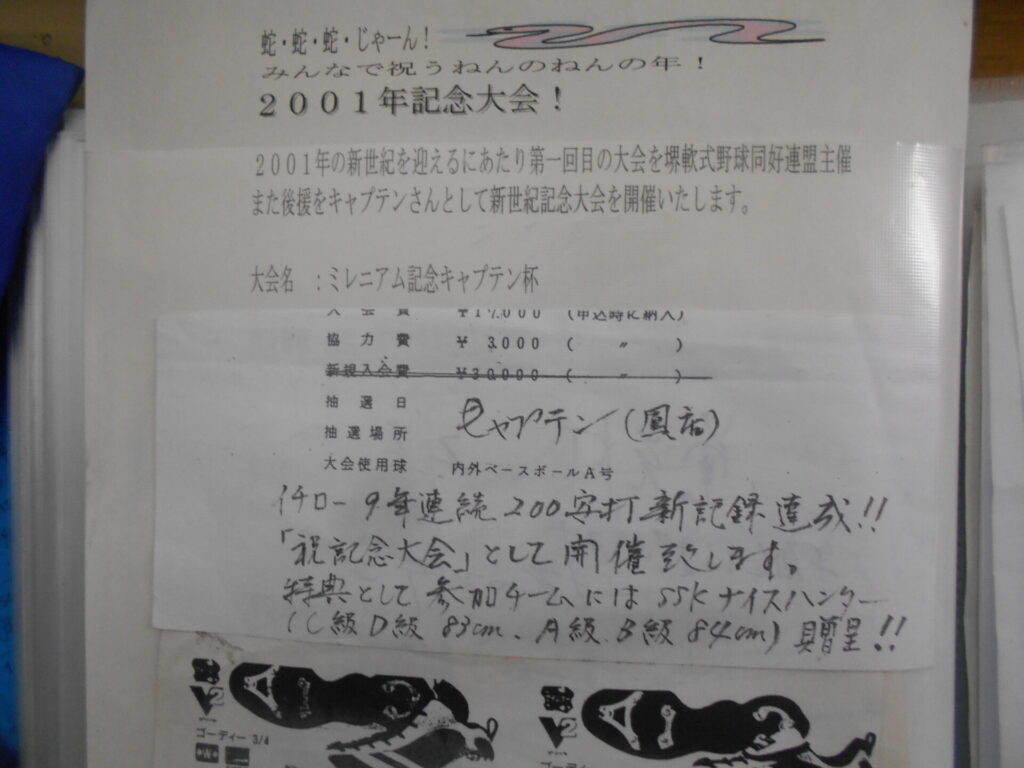 蛇・蛇・蛇・じゃーん!
みんなで祝うねんのねんの年!
2001年記念大会!
2001年の新世紀を迎えるにあたり第一回目の大会を堺軟式野球同好連盟主催
また後援をキャプテンさんとして新世紀記念大会を開催いたします。
大会名 :ミレニアム記念キャプテン杯
大会費 ¥17,000 (申込時に納入)
協力費 ¥ 3,000 ( 〃 )
新規入会費 ¥30,000 ( 〃 )
抽選日
抽選場所 キャプテン(鳳店)
大会使用球 内外ベースボールA号
イチロー9年連続200安打新記録達成!!
「祝記念大会」として開催致します。
特典として参加チームにはSSKナイスハンター
(C級D級 83cm、A級.B級 84cm)贈呈!!
ゴーディー 3/4